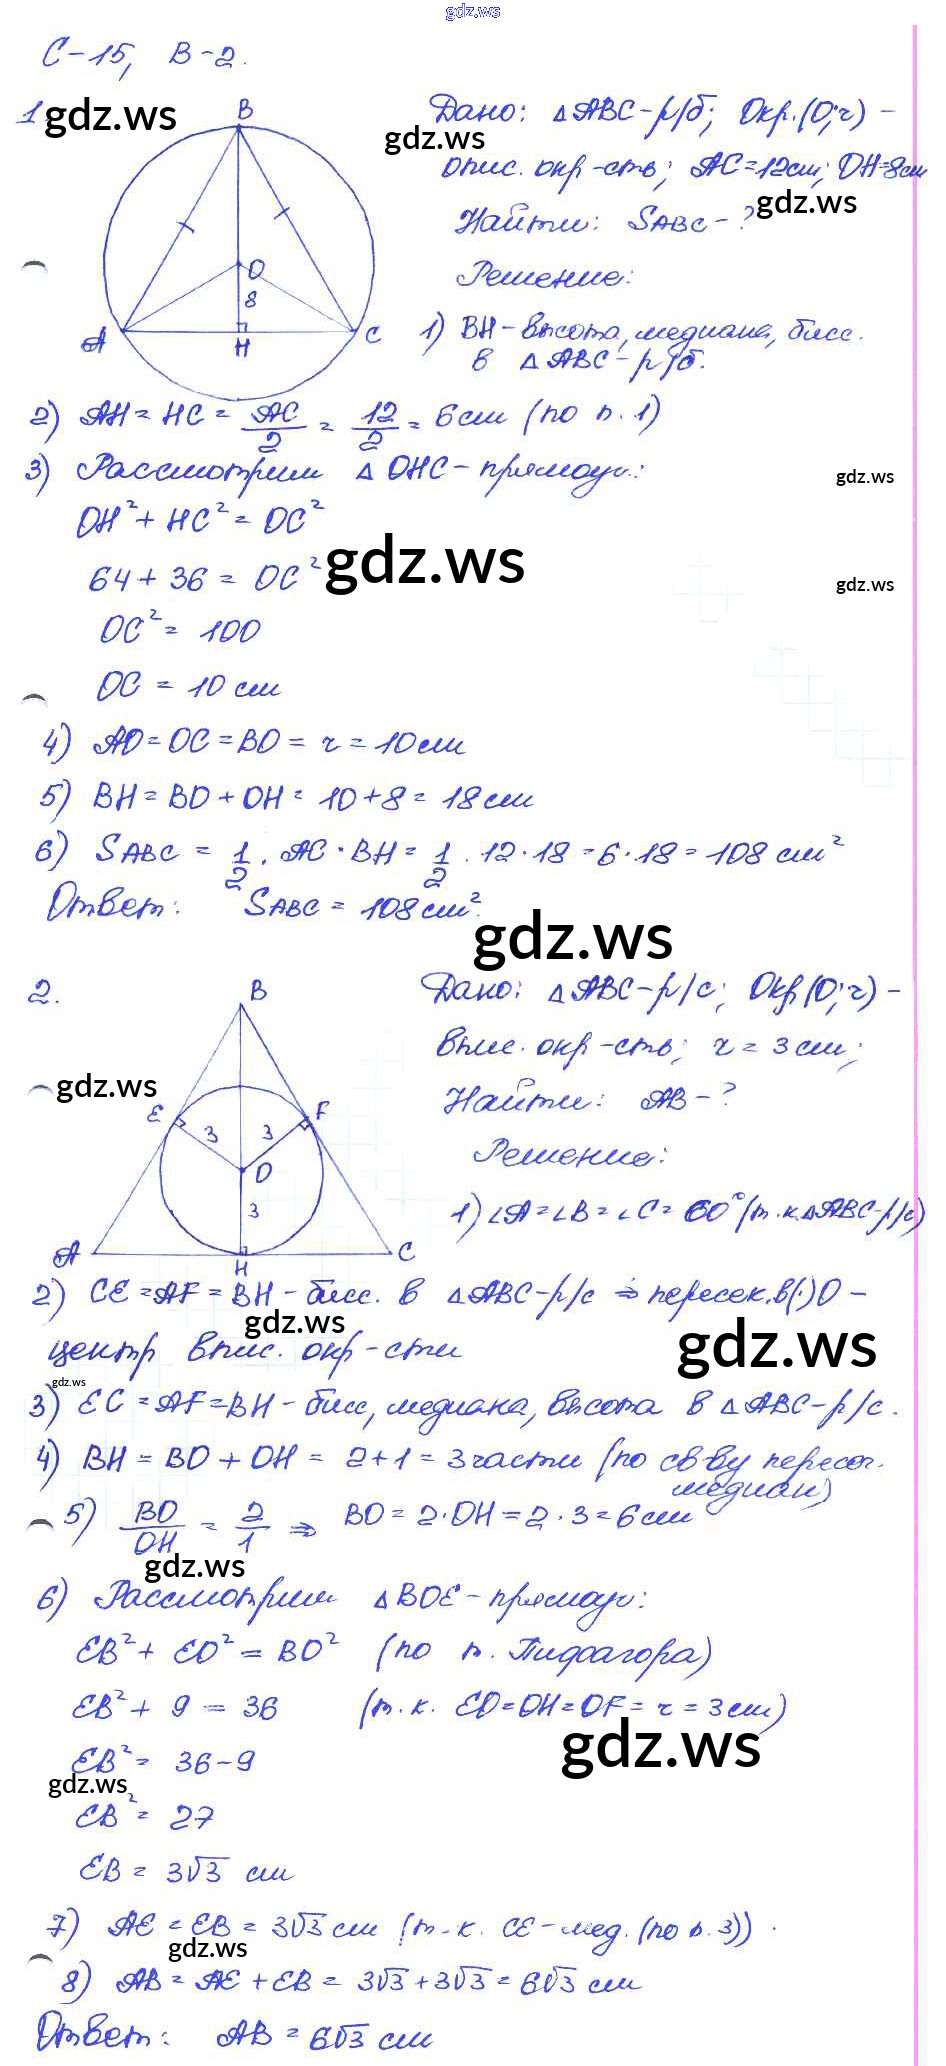 gdz.ws
С-15, В-2.
1. gdz.ws
B
O
8
A
H
C
Дано: △ABC-р/б; Окр.(O;r) -
gdz.ws
опис. окр-сть; AC=12см; OH=8см
gdz.ws
Найти: SABC - ?
Решение:
1) BH - высота, медиана, бисс.
в △ABC - р/б.
2) AH = HC = AC/2 = 12/2 = 6см (по п. 1)
3) Рассмотрим △OHC - прямоуг.:
gdz.ws
OH² + HC² = OC²
gdz.ws
64 + 36 = OC²
gdz.ws
OC² = 100
OC = 10 см
4) AO = OC = BO = r = 10см
5) BH = BO + OH = 10 + 8 = 18см
6) SABC = 1/2 · AC · BH = 1/2 · 12 · 18 = 6 · 18 = 108 см²
Ответ: SABC = 108 см².
gdz.ws
2.
B
E
F
3
3
O
3
A
H
C
gdz.ws
Дано: △ABC - р/с; Окр(O;r) -
впис. окр-сть; r = 3 см;
Найти: AB - ?
Решение:
1) ∠A = ∠B = ∠C = 60° (т.к. △ABC-р/с)
2) CE = AF = BH - бисс. в △ABC-р/с ⇒ пересек. в (·) O -
gdz.ws
центр впис. окр-сти
gdz.ws
gdz.ws
3) EC = AF = BH - бисс, медиана, высота в △ABC-р/с.
4) BH = BO + OH = 2+1 = 3 части (по св-ву пересеч.
медиан)
5) BO/OH = 2/1 ⇒ BO = 2·OH = 2 · 3 = 6см
gdz.ws
6) Рассмотрим △BOE - прямоуг:
EB² + EO² = BO² (по т. Пифагора)
EB² + 9 = 36 (т.к. EO=OH=OF = r = 3см)
gdz.ws
EB² = 36-9
gdz.ws
EB² = 27
EB = 3√3 см
7) AE = EB = 3√3 см (т-к. CE-мед. (по п. 3)).
gdz.ws
8) AB = AE + EB = 3√3 + 3√3 = 6√3 см
Ответ: AB = 6√3 см